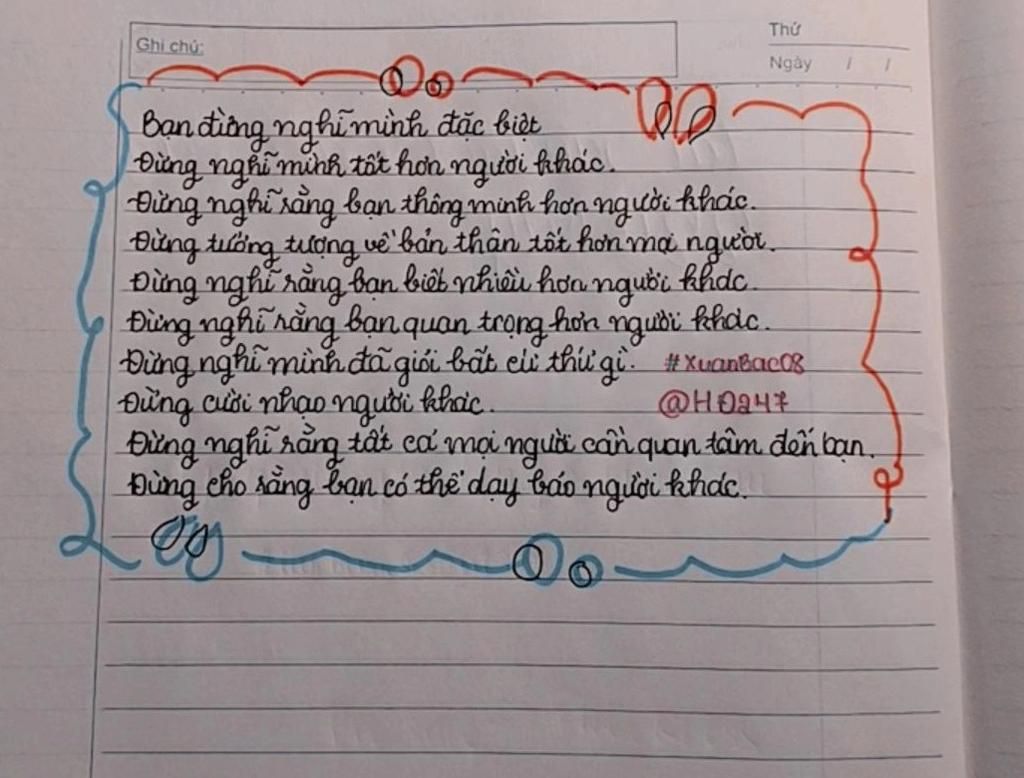 Ghi chú:
Thứ
Ngày / /
Bạn đừng nghĩ mình đặc biệt
Đừng nghĩ mình tốt hơn người khác.
Đừng nghĩ rằng bạn thông minh hơn người khác.
Đừng tưởng tượng về bản thân tốt hơn mọi người.
Đừng nghĩ rằng bạn biết nhiều hơn người khác.
Đừng nghĩ rằng bạn quan trọng hơn người khác.
Đừng nghĩ mình đã giỏi bất cứ thứ gì. #XuanBac08
Đừng cười nhạo người khác. @HĐ247
Đừng nghĩ rằng tất cả mọi người cần quan tâm đến bạn.
Đừng cho rằng bạn có thể dạy bảo người khác.